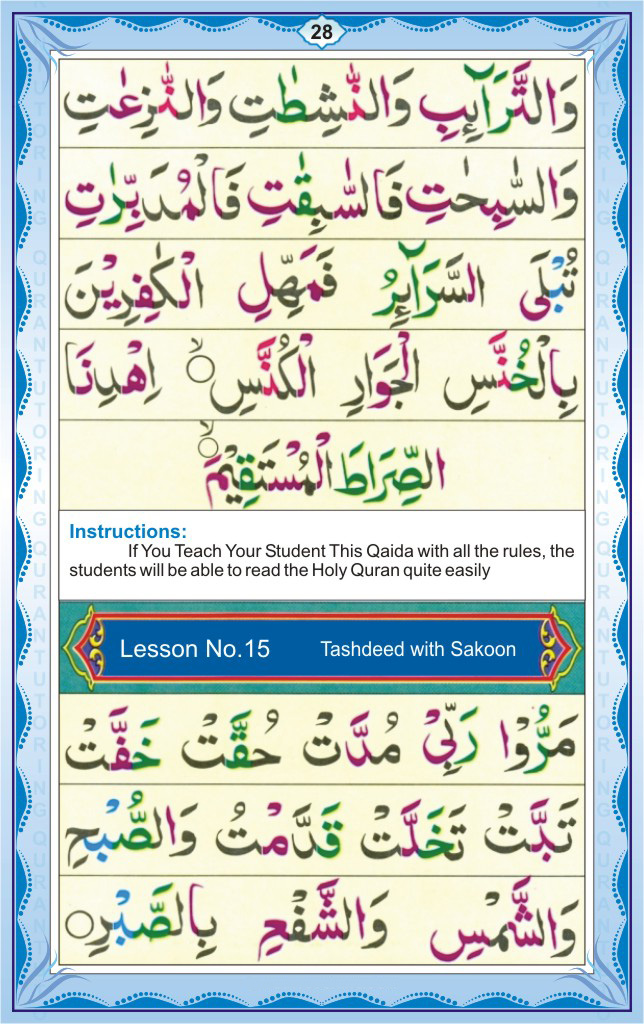 28
وَالتَّرَآئِبِ وَالنّٰشِطٰتِ وَالنّٰزِعٰتِ
وَالسّٰبِحٰتِ فَالسّٰبِقٰتِ فَالْمُدَبِّرٰتِ
تُبْلَى السَّرَآئِرُ فَمَهِّلِ الْكٰفِرِيْنَ
بِالْخُنَّسِ الْجَوَارِ الْكُنَّسِ ۙ اِهْدِنَا
الصِّرَاطَ الْمُسْتَقِيْمَ ۙ
Instructions:
If You Teach Your Student This Qaida with all the rules, the
students will be able to read the Holy Quran quite easily
Lesson No.15 Tashdeed with Sakoon
مَرُّوْا رَبِّيْ مُدَّتْ حُقَّتْ خَفَّتْ
تَبَّتْ تَخَلَّتْ قَدَّمْتُ وَالصُّبْحِ
وَالشَّمْسِ وَالشَّفْعِ بِالصَّبْرِ ۝
QURAN TUTORING
QURAN TUTORING